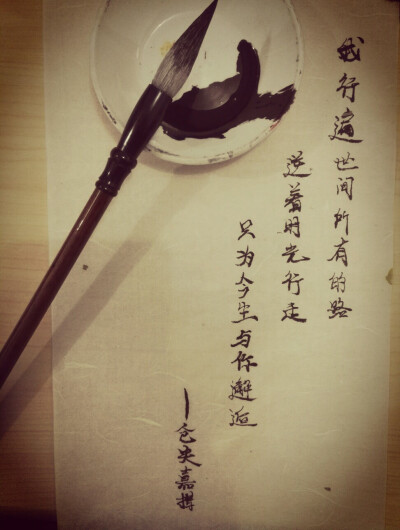 我行遍世间所有的路
逆着时光行走
只为今生与你邂逅
—仓央嘉措